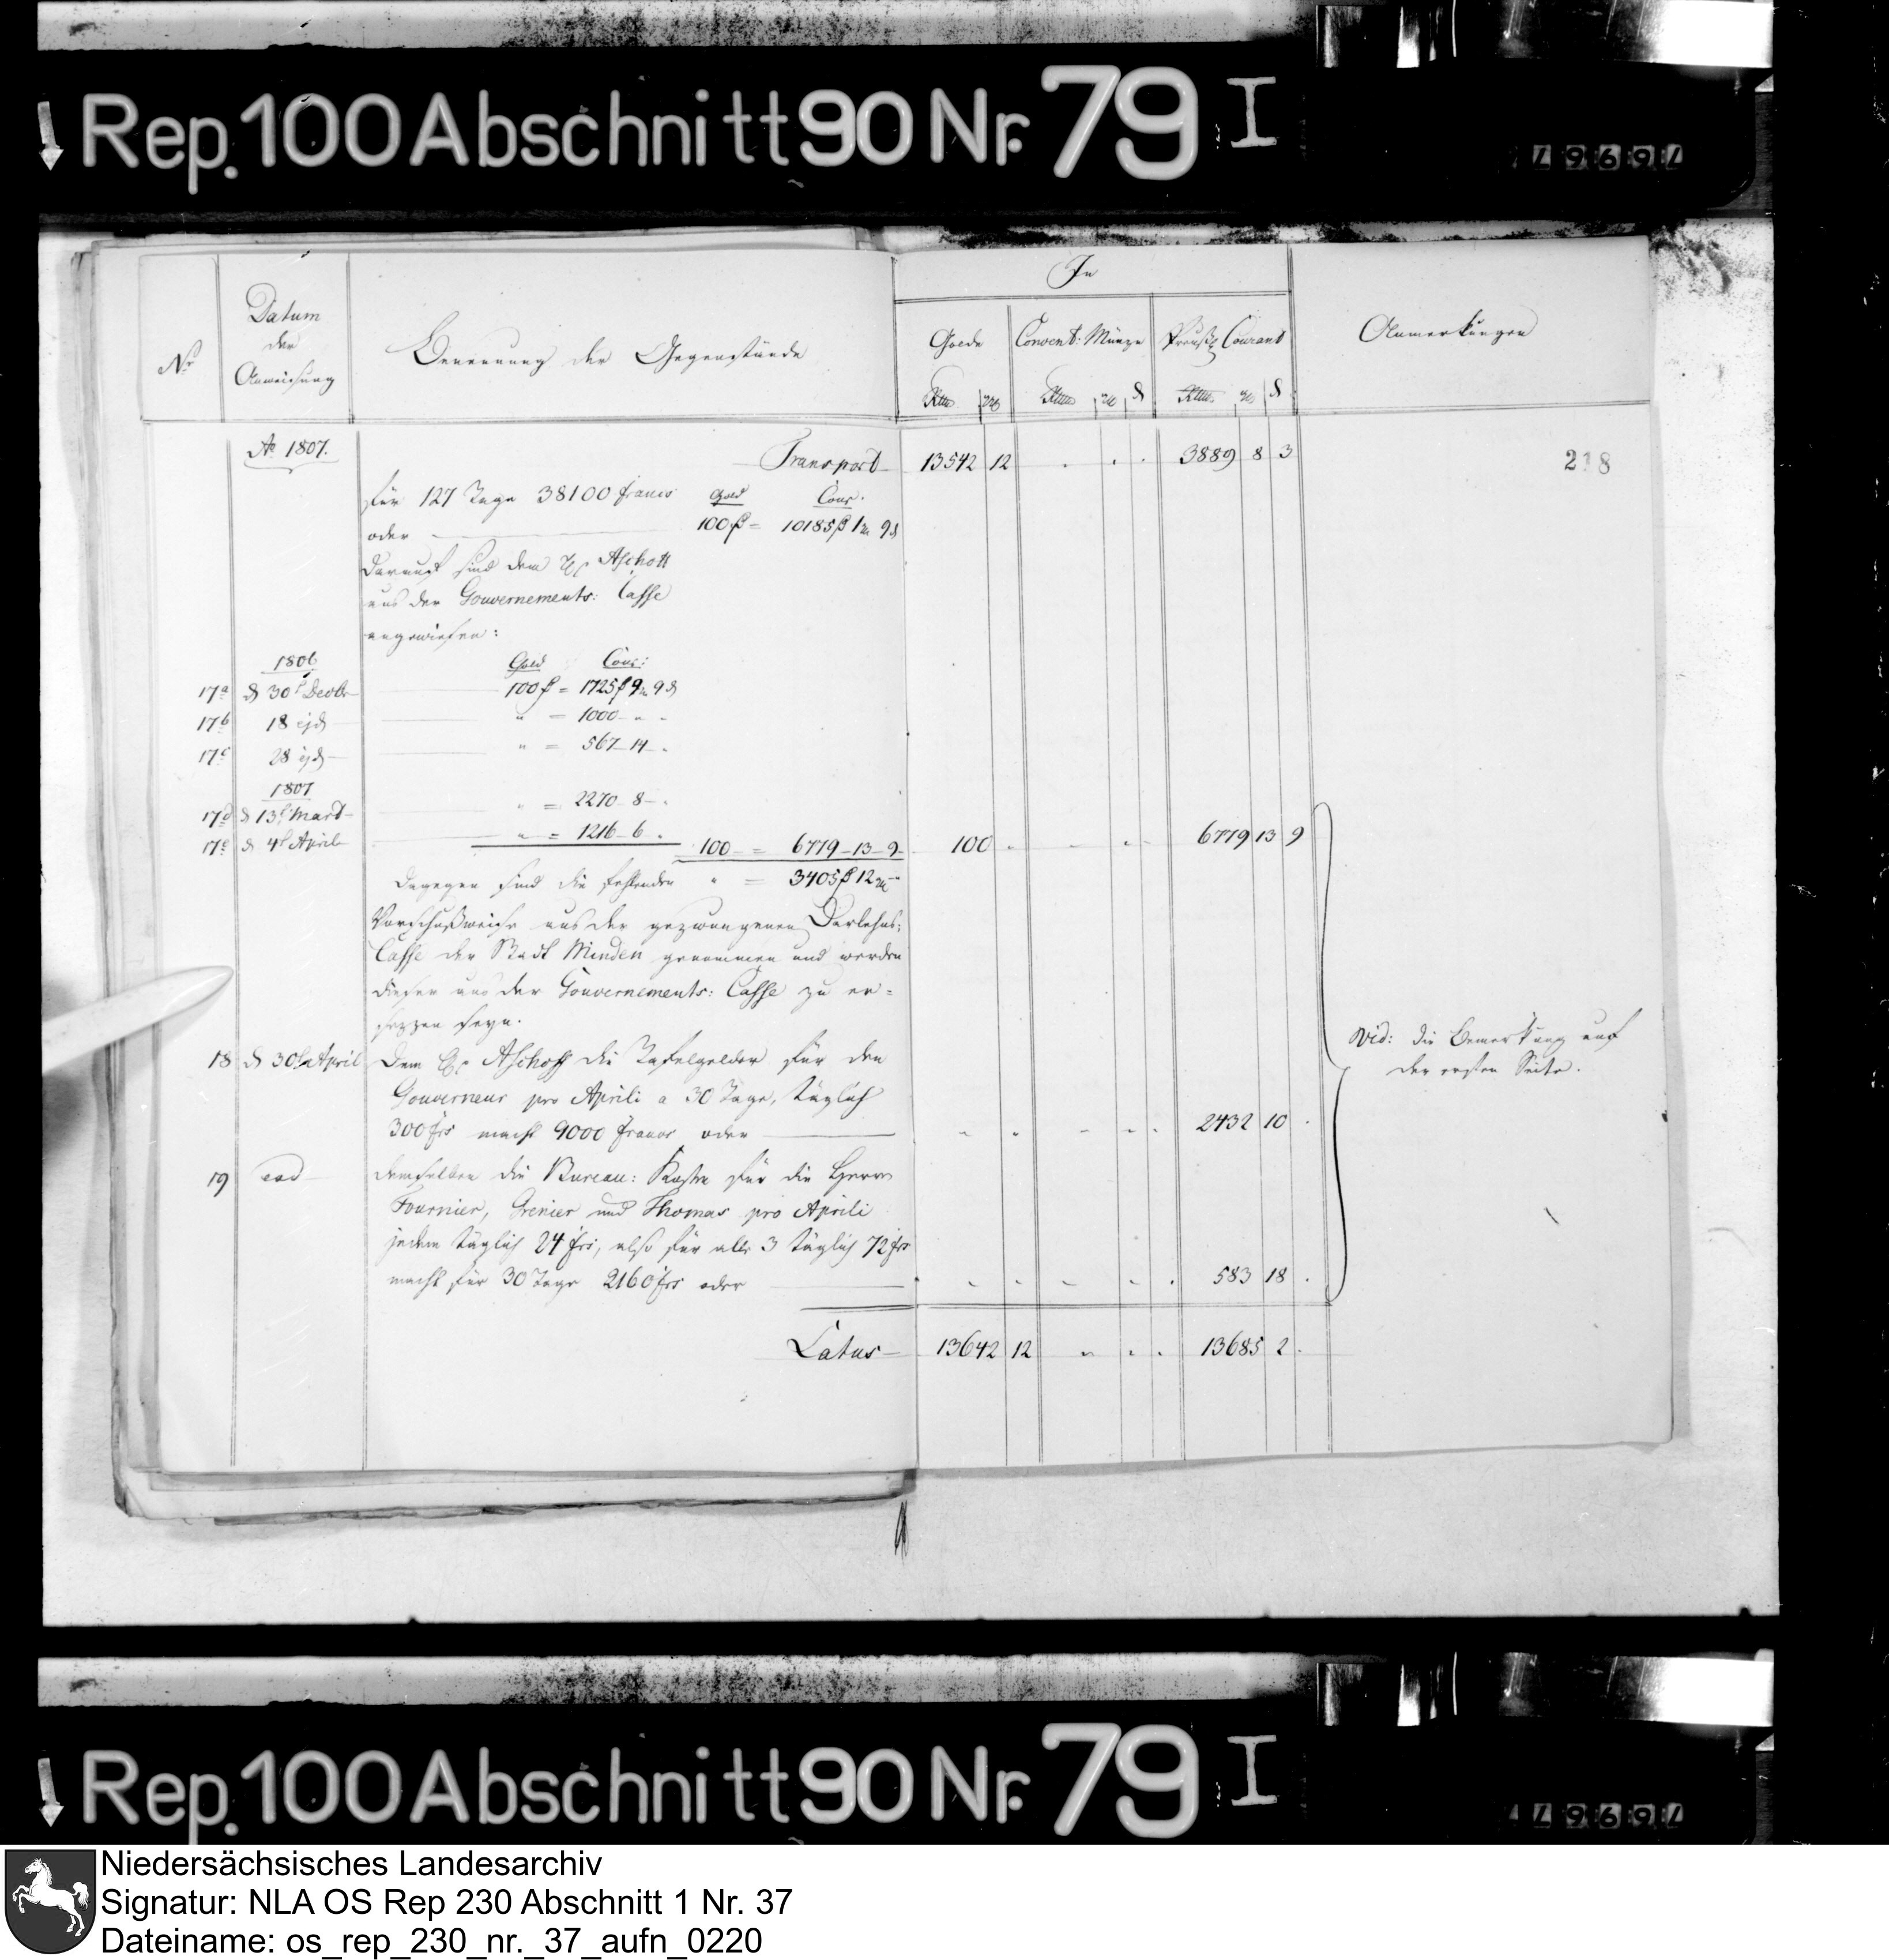 Rep. 100 Abschnitt 90 Nr. 79 I
In
Nr
Datum
der
Anweisung
Benennung der Gegenstände
Golde
Convent: Münze
Preuß. Courant
Anmerkungen
Ao 1807.
Transport 13542 12 3889 8 3
218
für 127 Tage 38100 francs Gold Cour.
oder 100 β = 10185 β 1 9
darauf sind dem Aschoff
aus der Gouvernements: Casse
angewiesen:
1806 Gold Cour:
17a d 30t Decbr 100 β = 1725 β 9 9
17b 18 ejd " = 1000 - -
17c 28 ejd " = 567 - 14 -
1807
17d d 13t Mart " = 2270 - 8 -
17e d 4t April " = 1216 - 6 -
100 = 6779 - 13 - 9 100 6779 13 9
dagegen sind die fehlenden " = 3405 β 12
Vorschußweise aus der gezwungenen Darlehns:
Casse der Stadt Minden genommen und werden
dieser aus der Gouvernements: Casse zu er=
sezzen seyn.
vid: die Bemerkung auf
der ersten Seite.
18 d 30tn April Dem Aschoff die Tafelgelder für den
Gouverneur pro Aprili a 30 Tage, täglich
300 frs macht 9000 francs oder 2432 10
19 eod demselben die Bureau: Kosten für die Herrn
Fournier, Grenier und Thomas pro Aprili
jedem täglich 24 frs, also für alle 3 täglich 72 frs
macht für 30 Tage 2160 frs oder 583 18
Latus 13642 12 13685 2
Rep. 100 Abschnitt 90 Nr. 79 I
Niedersächsisches Landesarchiv
Signatur: NLA OS Rep 230 Abschnitt 1 Nr. 37
Dateiname: os_rep_230_nr._37_aufn_0220